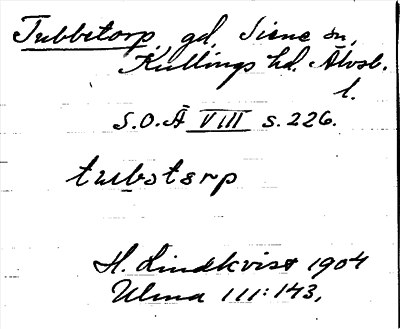 Tubbetorp, gd, Siene sn,
Kullings hd. Älvsb.
l.
S.O.Ä VIII s. 226.
tubstsrp
H. Lindkvist 1904
Ulma 111:143.